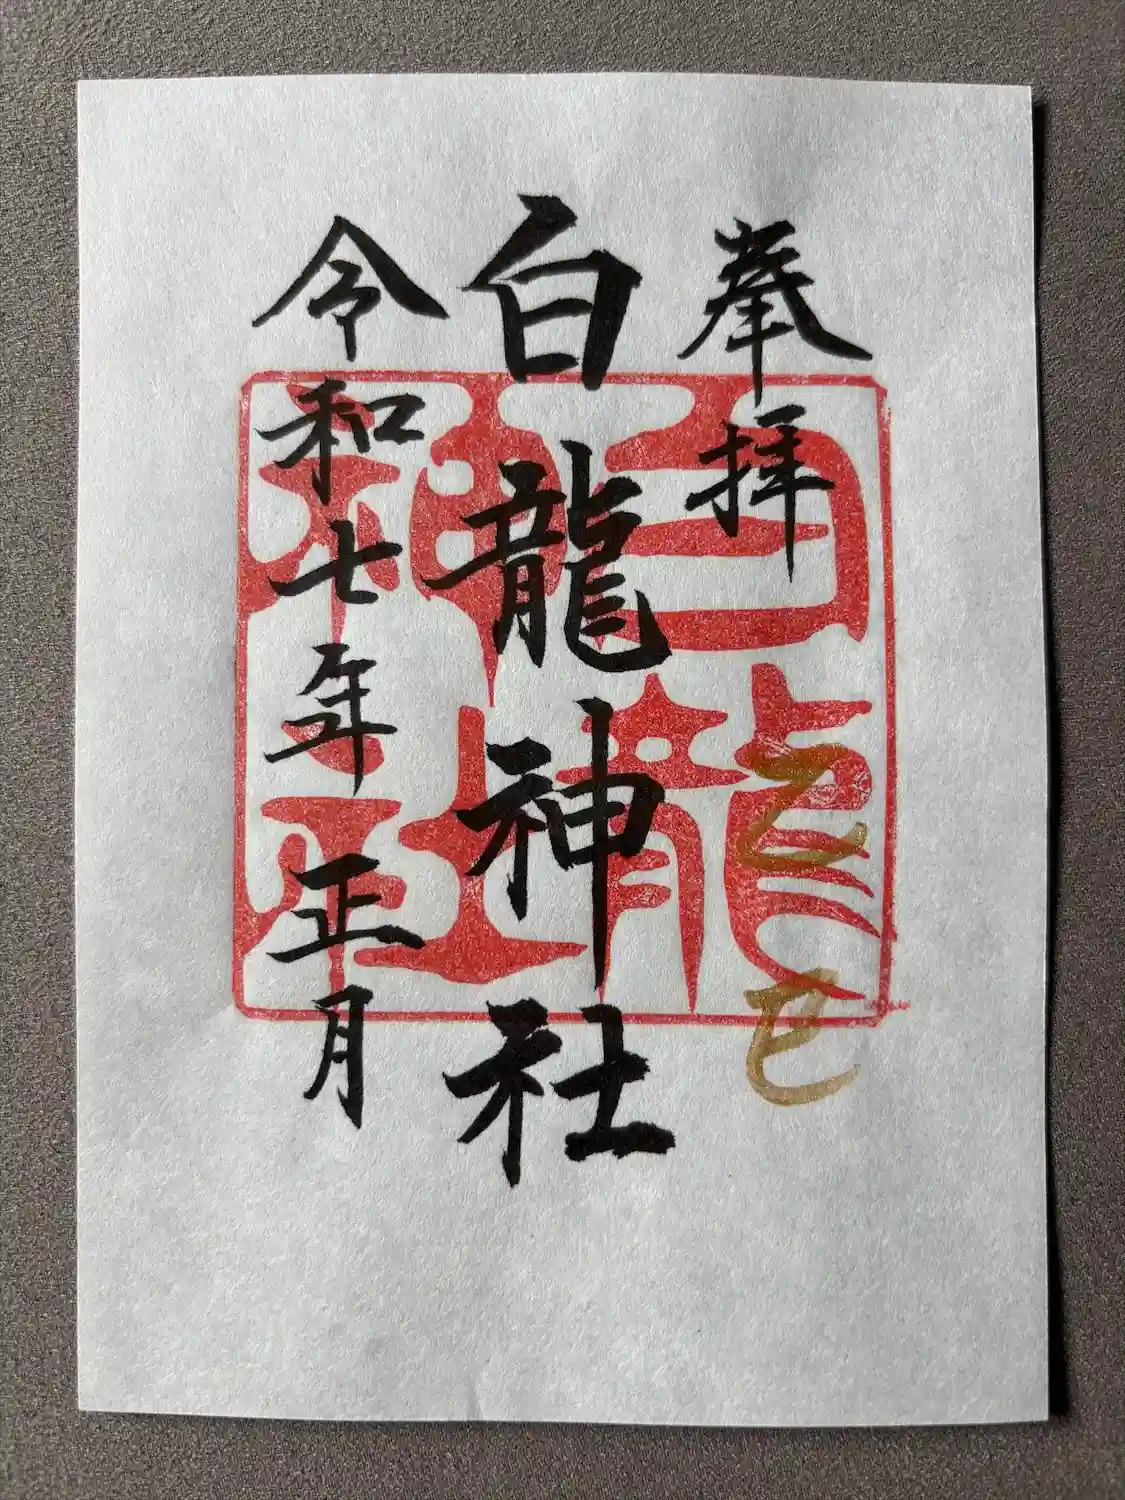 奉拝
乙巳
白龍神社
令和七年正月
白龍神社